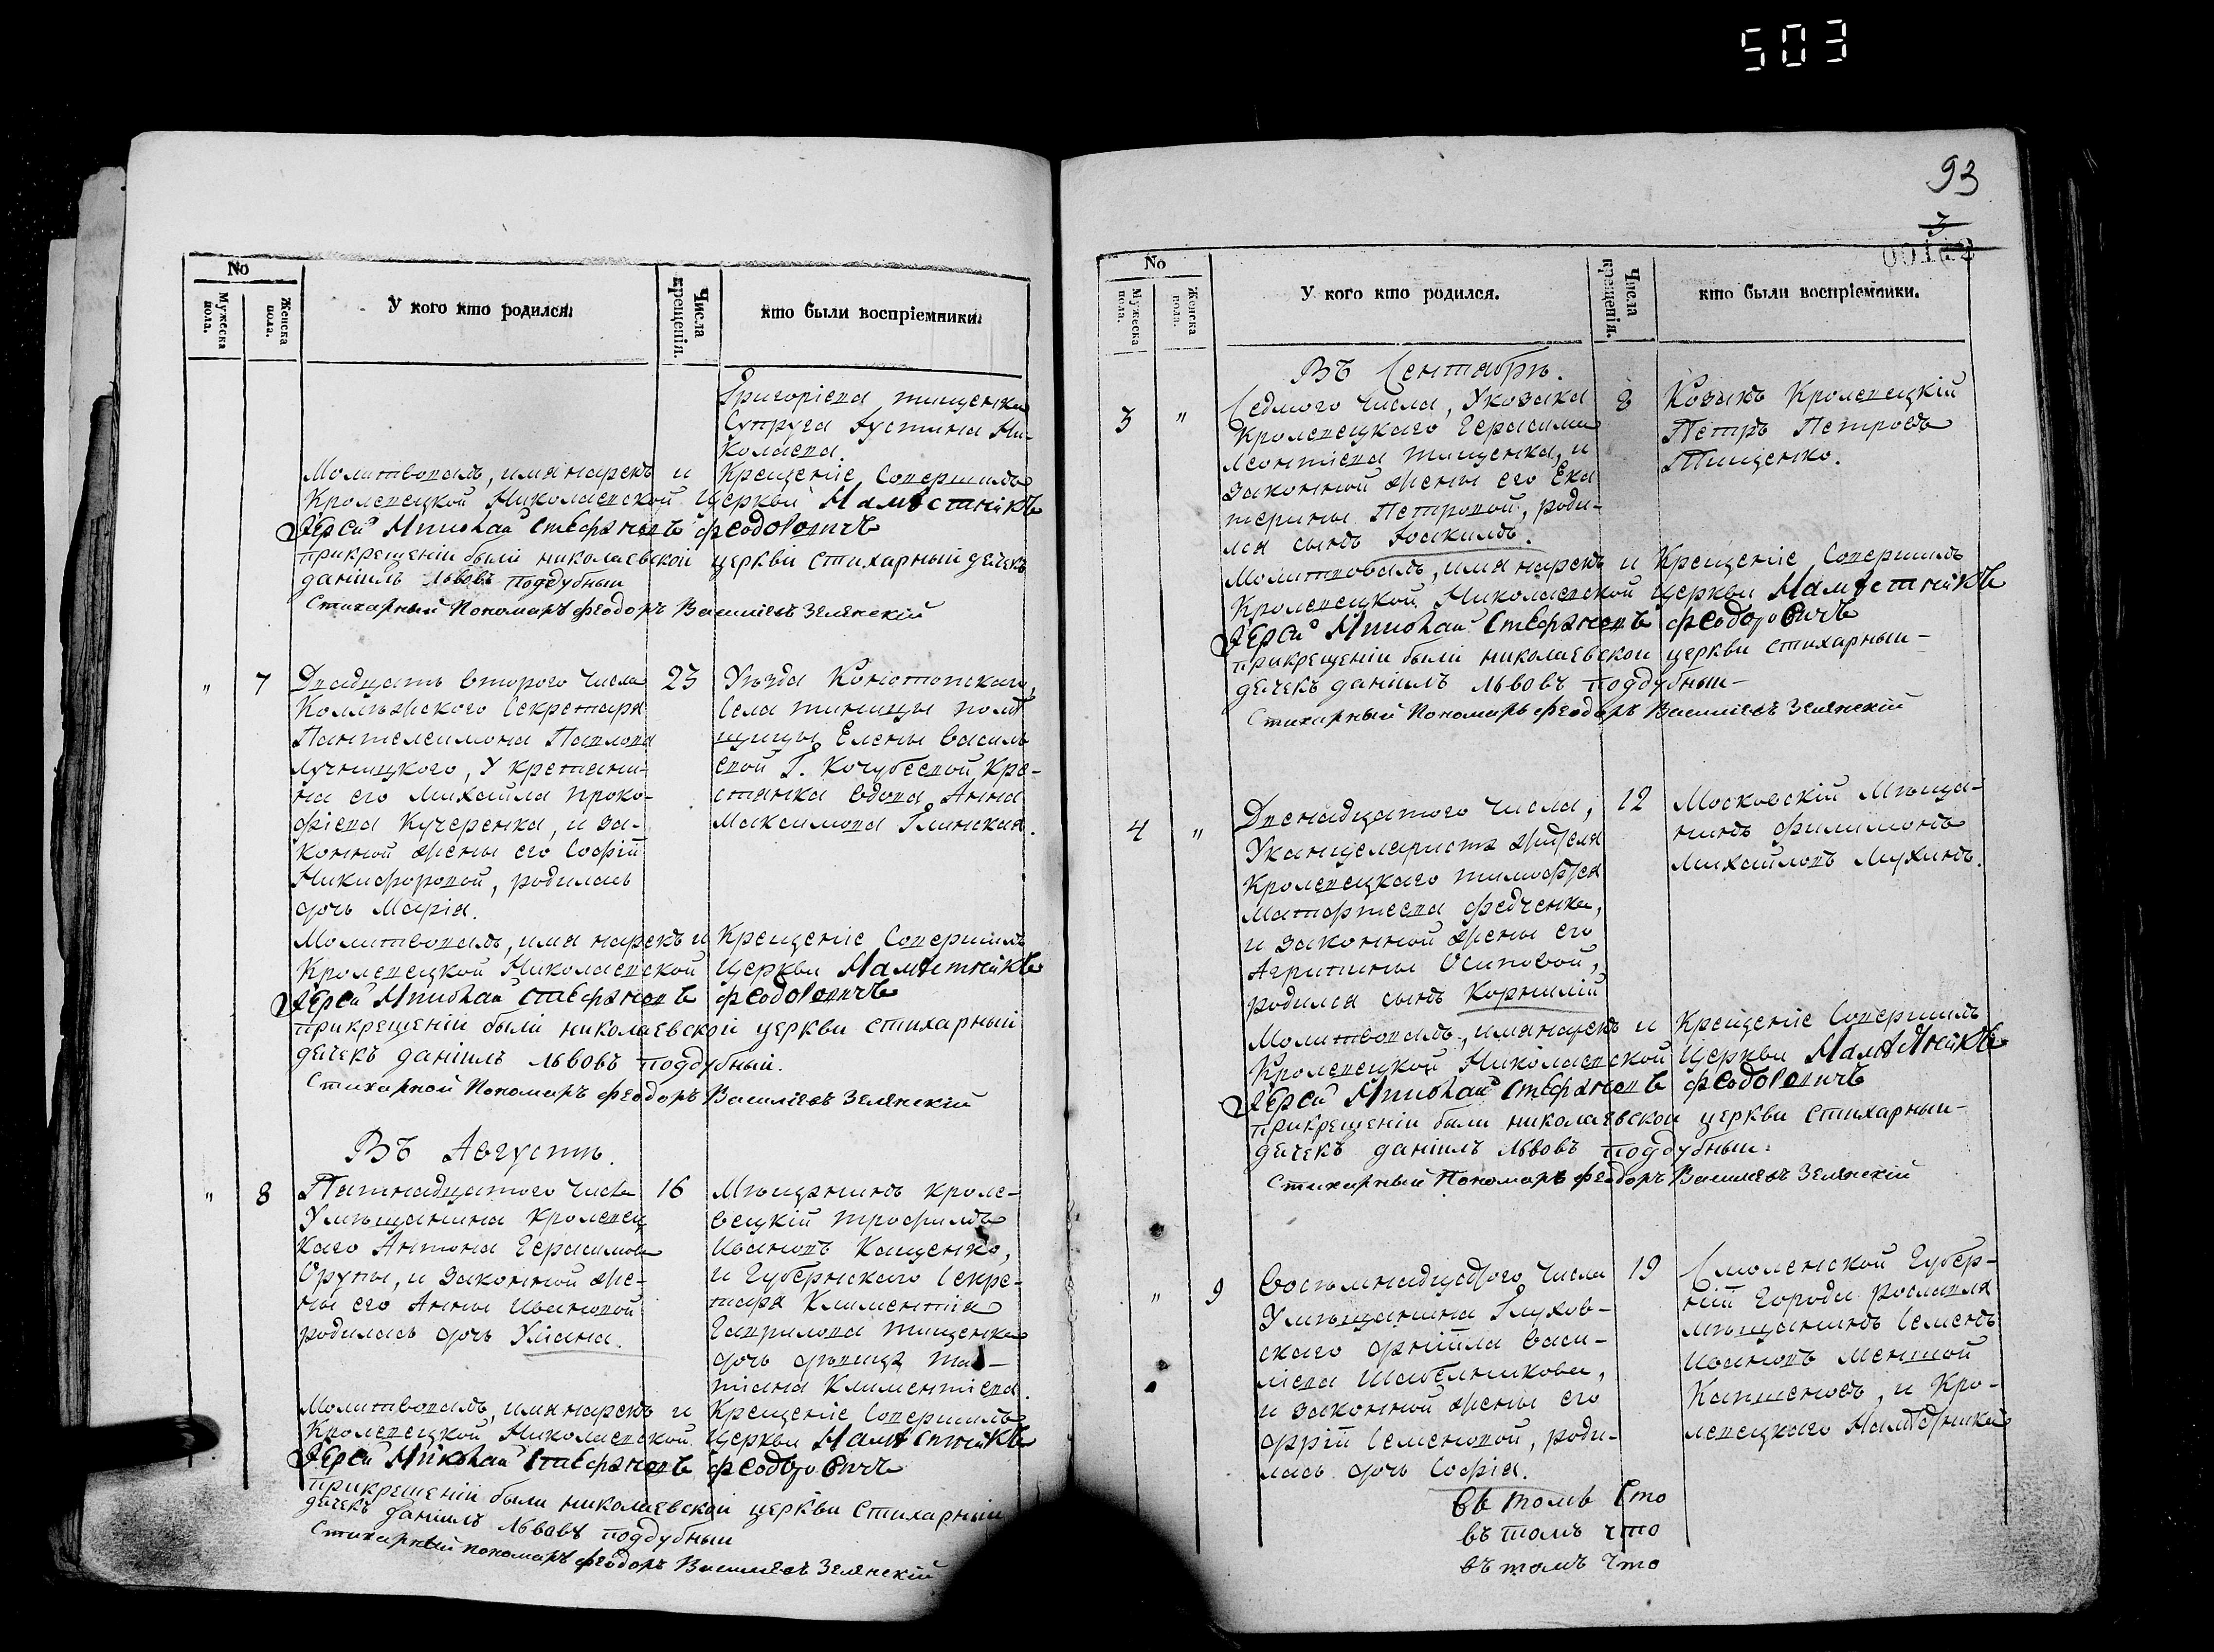 503
No
Мужеска пола.
Женска пола.
У кого кто родился.
Числа крещенія.
кто были воспріемники.
Григоріева тищенка
Супруга Іустина Ни-
колаева.
Молитвовалъ, имя нарекъ и Крещеніе Совершилъ
Кролевецкой Николаевской Церкви Намѣстникъ
Іерей Николай Стефановъ Феодоровичъ
прикрещеніи были николаевской церкви стихарный дечекъ
даніилъ львовъ поддубный
Стихарный Пономаръ феодоръ Василіевъ Зелянскій
" 7
Двадцать второго числа
Коллѣжского Секретаря
Пантелеимона Павлова
лучницкого, у крестяни-
на его михайла проко-
фіева Кучеренка, и за-
конной жены его Софіи
Никифоровой, родилась
дочь Марія.
23
Уѣзда Конотопскаго,
Села тиницы помѣ
щицы Елены василь
евой Г. Кочубеевой Кре-
стянка вдова Анна
максимова Глинская.
Молитвовалъ, имя нарекъ и Крещеніе Совершилъ
Кролевецкой Николаевской Церкви Намѣстникъ
Іерей Николай Стефановъ Феодоровичъ
прикрещеніи были николаевской церкви стихарный
дечекъ даніилъ львовъ поддубный.
Стихарной Пономаръ феодоръ Василіевъ Зелянскій
Въ Августѣ.
" 8
Пятнадцатого числа
Умѣщанина Кролевец
каго Антона Герасимова
Орупы, и законной же-
ны его Анны Ивановой
родилась дочь Уліана.
16
Мѣщанинъ кроле-
вецкій трофимъ
ивановъ Кащенко,
и Губернского Секре-
таря Климентія
Гаврилова тищенка
дочь дѣвица та-
тіана Климентіева.
Молитвовалъ, имя нарекъ и Крещеніе Совершилъ
Кролевецкой Николаевской Церкви Намѣстникъ
Іерей Николай Стефановъ Феодоровичъ
прикрещеніи были николаевской церкви Стихарный
дечекъ даніилъ львовъ поддубный
Стихарный пономаръ феодоръ Василіевъ Зелянскій
93
3
No
Мужеска пола.
Женска пола.
У кого кто родился.
Числа крещенія.
кто были воспріемники.
Въ Сентябрѣ.
3 "
Седмого числа, Укозака
Кролевецкаго Герасима
леонтіева тищенка, и
законной жены его Ека
терины Петровой, роди-
лся сынъ Іоакимъ.
8
Козакъ Кролевецкій
Петръ Петровъ
Тищенко.
Молитвовалъ, имя нарекъ и Крещеніе Совершилъ
Кролевецкой Николаевской Церкви Намѣстникъ
Іерей Николай Стефановъ Феодоровичъ
прикрещеніи были николаевской церкви стихарный
дечекъ даніилъ львовъ поддубный
Стихарный Пономаръ феодоръ Василіевъ Зелянскій
4 "
Двенадцатого числа,
Уканцеляриста жителя
Кролевецкаго тимофѣя
матфтеева федченка,
и законной жены его
Агрипины Осиповой,
родился сынъ Корнилій
12
Московскій мѣща-
нинъ филимонъ
михайловъ мухинъ.
Молитвовалъ, имя нарекъ и Крещеніе Совершилъ
Кролевецкой Николаевской Церкви Намѣстникъ
Іерей Николай Стефановъ Феодоровичъ
прикрещеніи были николаевской церкви стихарный
дечекъ даніилъ львовъ поддубный
Стихарный Пономаръ феодоръ Василіевъ Зелянскій
" 9
Восѣмнадцатого числа
Умѣщанина Глухов-
скаго васи-
лиева Шабельникова,
и законной жены его
Семеновой, роди-
лась дочь Софія.
19
Смоленской Губер-
ніи Города рославля
мѣщанинъ Семенъ
ивановъ меншой
и Кро-
левецкаго Намѣстника
въ томъ что
въ томъ что
въ томъ что